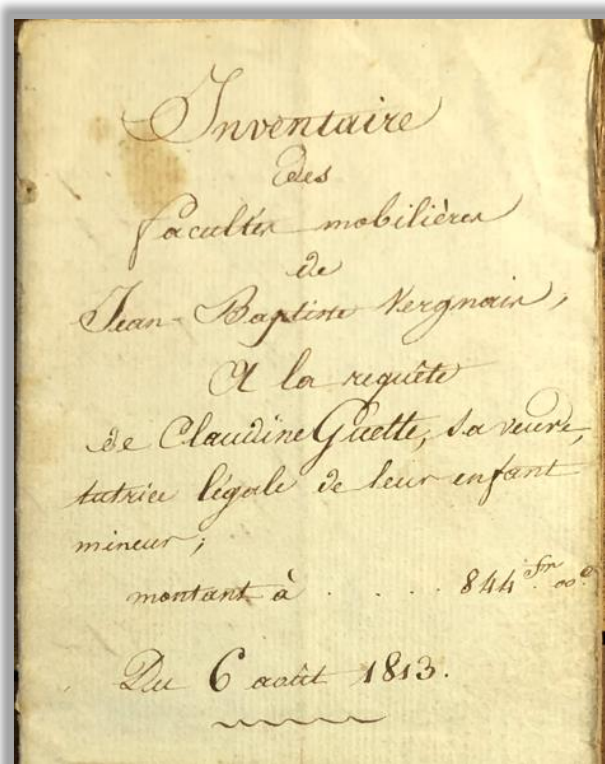 Inventaire
des
facultés mobilières
de
Jean-Baptiste Vergnais,
A la requête
de Claudine Guette, sa veuve,
tutrice légale de leur enfant
mineur;
montant à . . . . 844 frs 00 c
Du 6 août 1813.